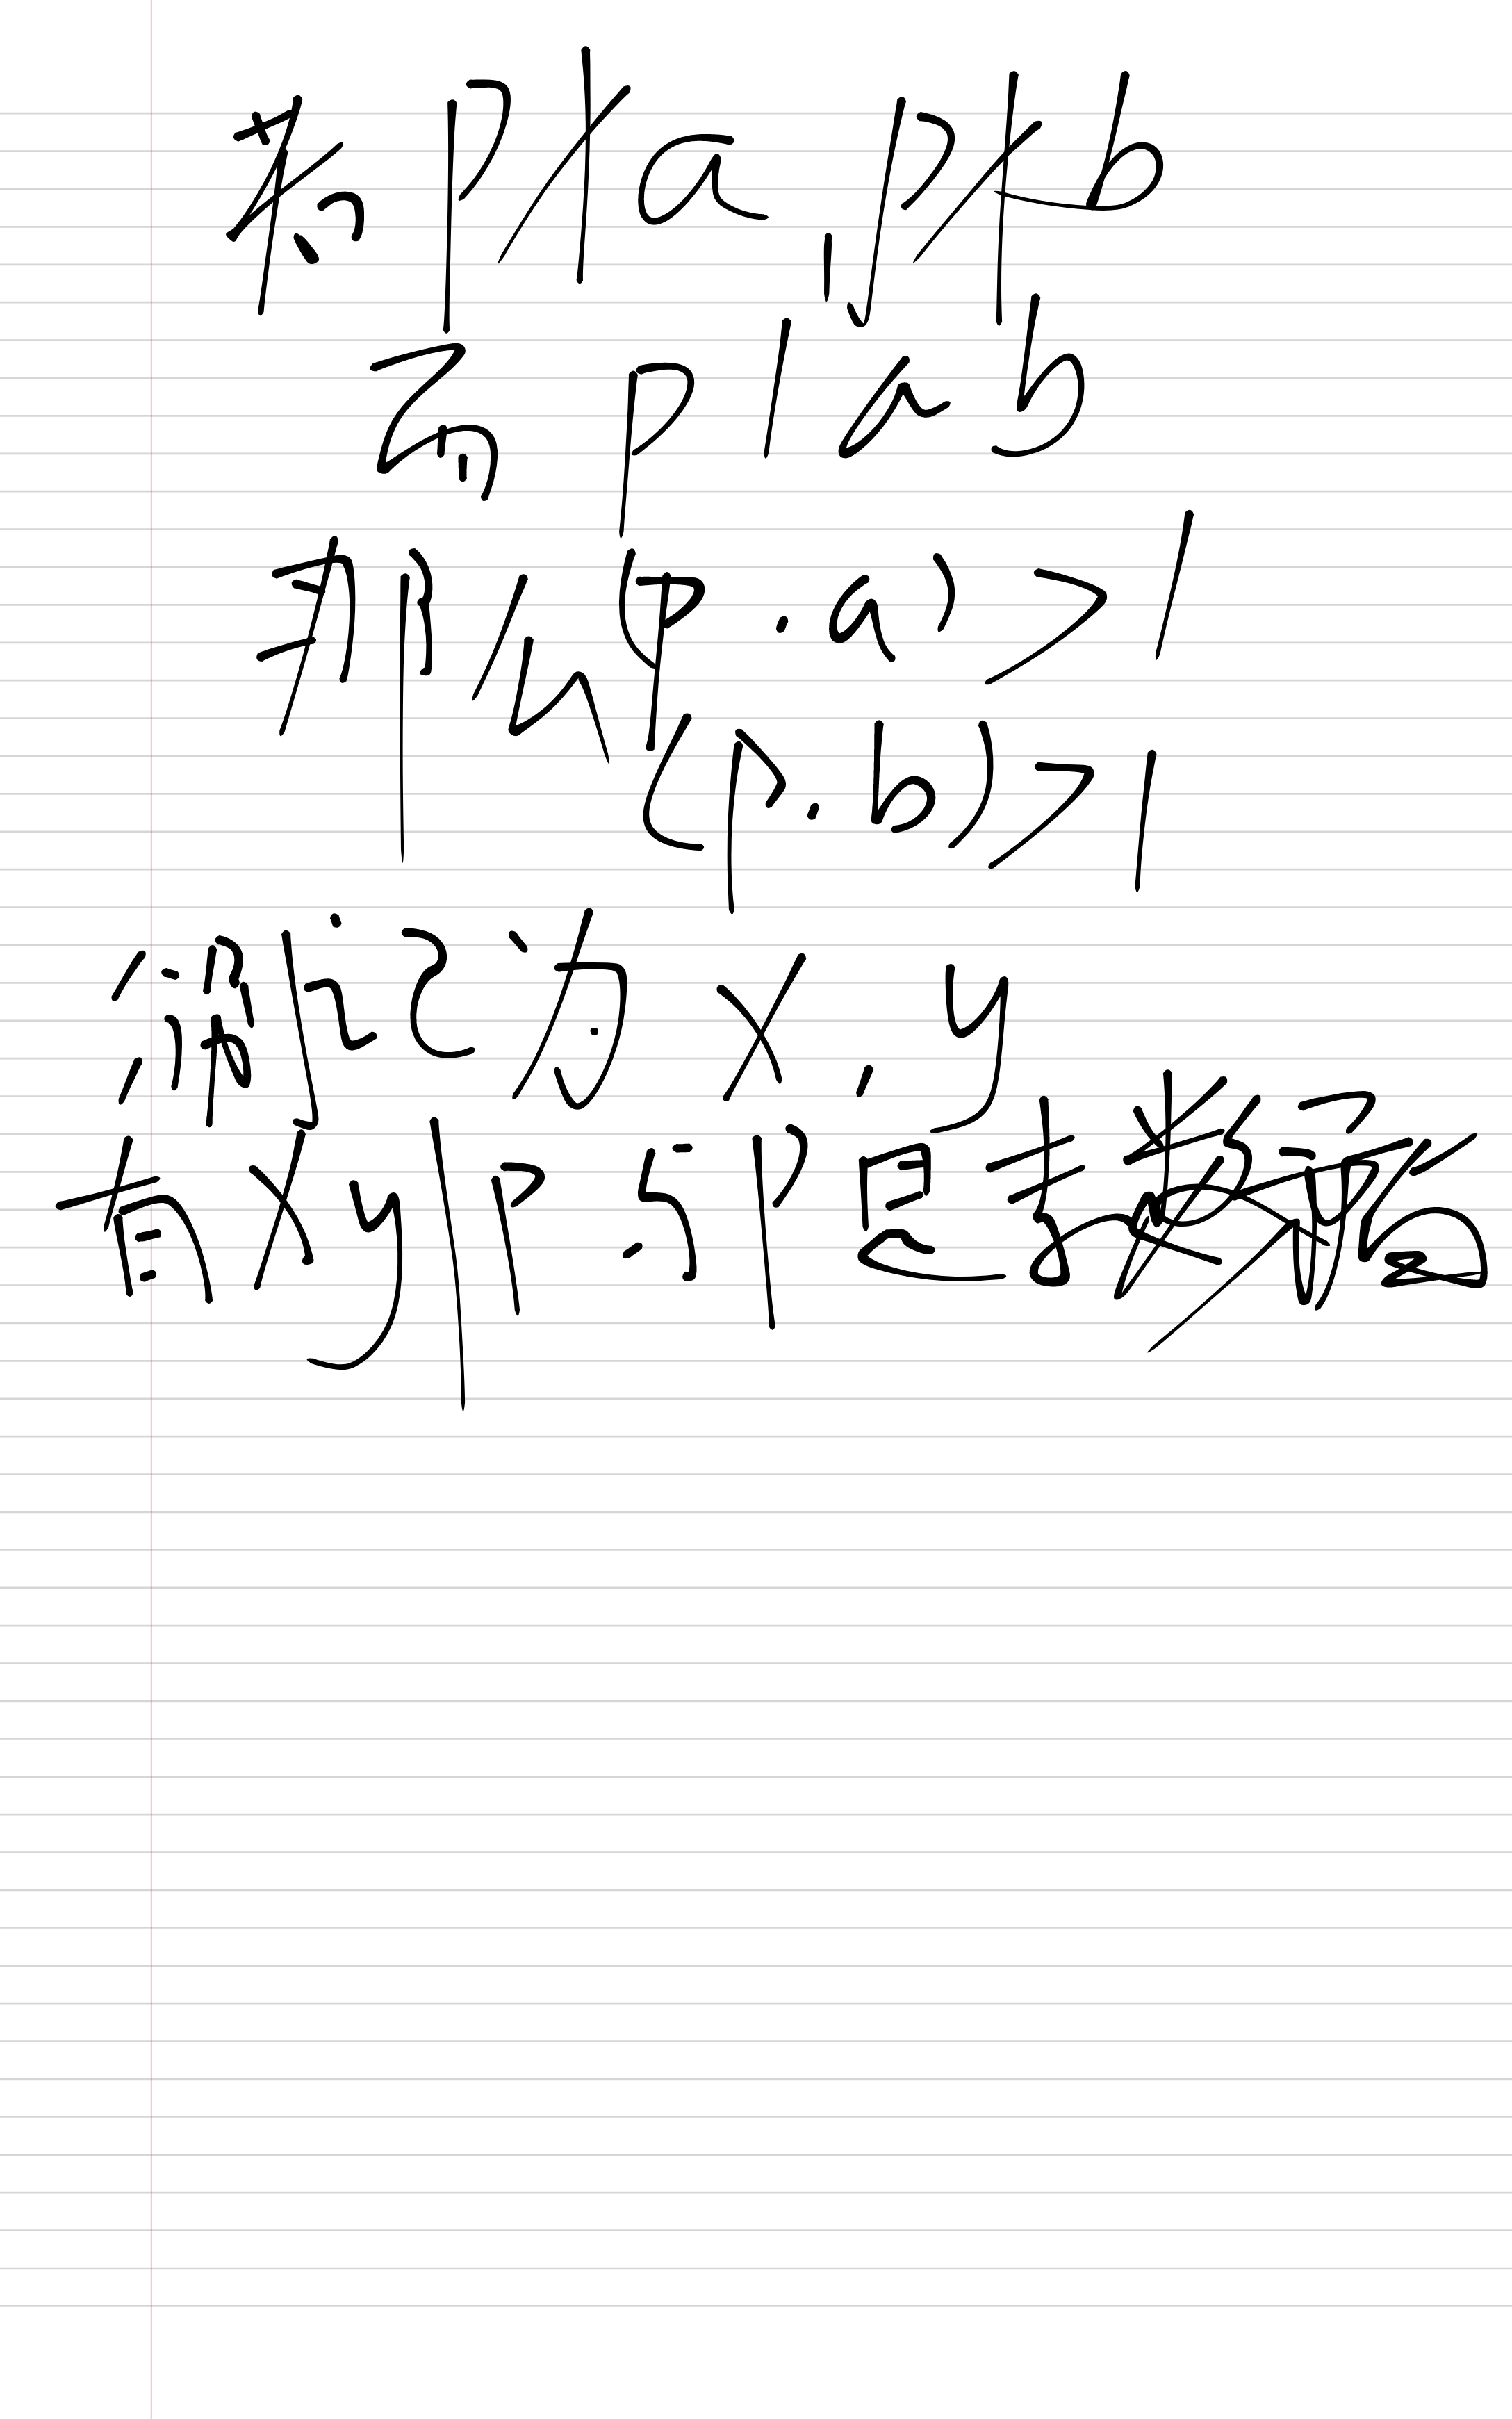 若p∤a,p∤b
而p|ab
那么(p.a)>1
(p.b)>1
,,分别记为x,y
有xy|p.与p是素数矛盾